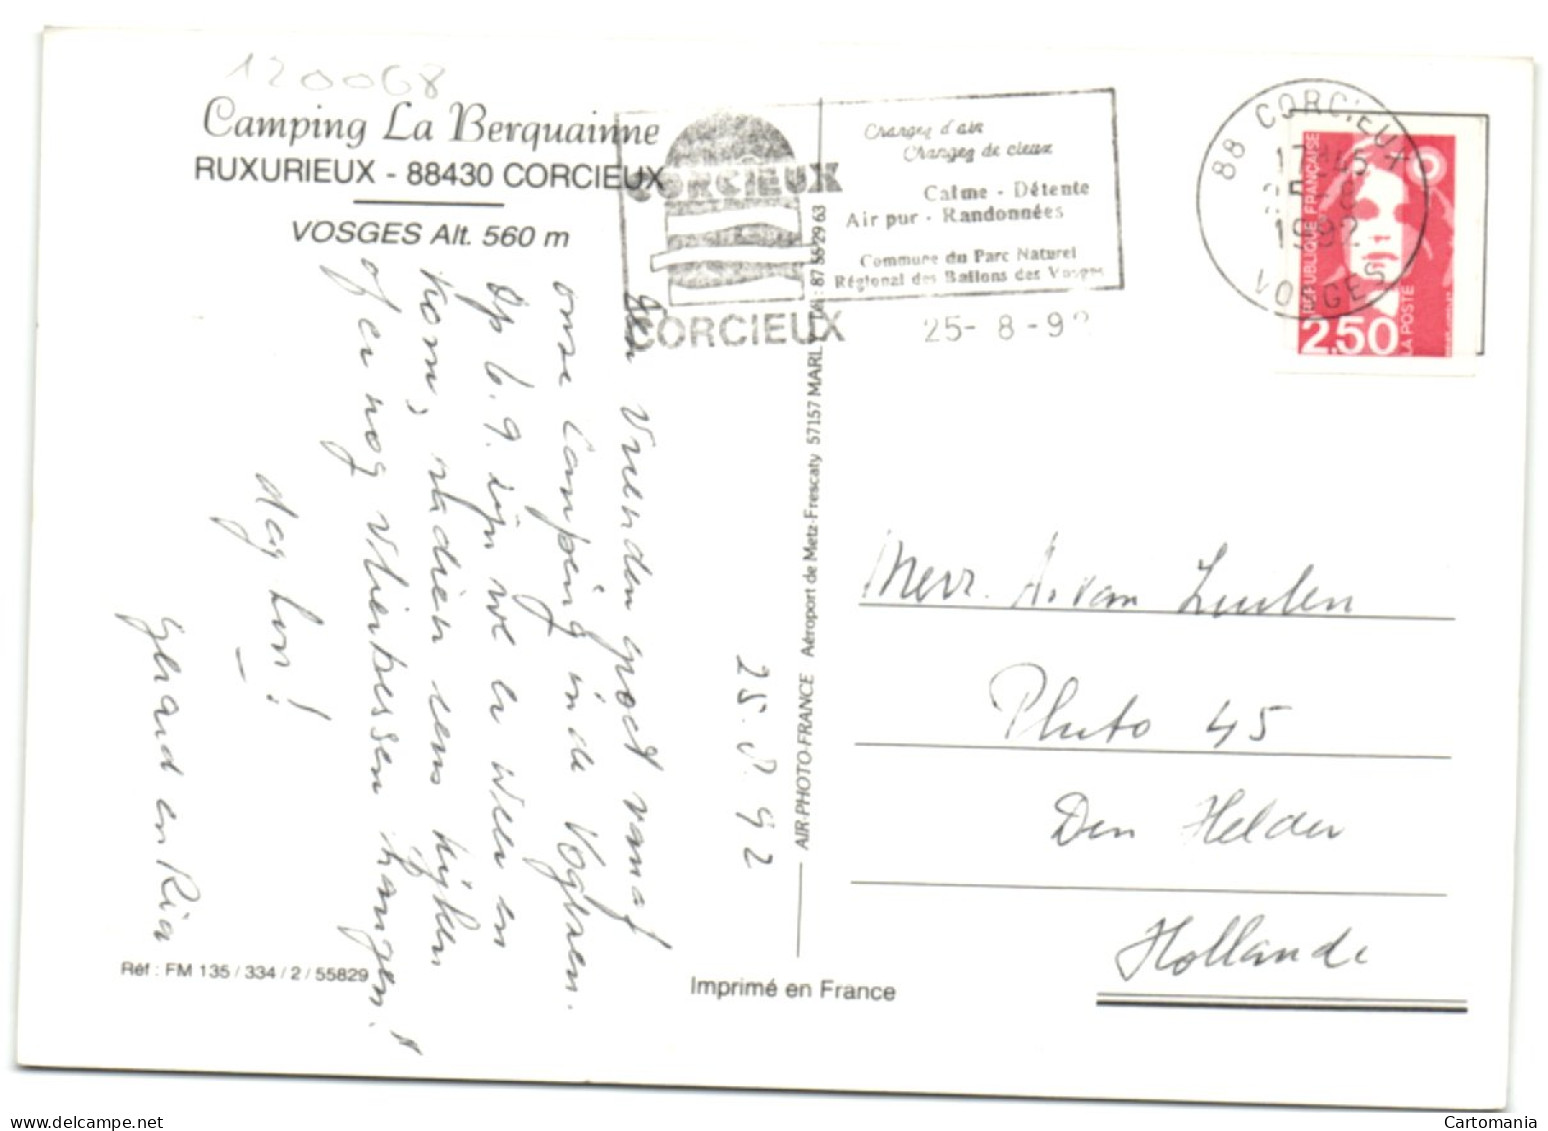 120068
Camping La Berquainne
RUXURIEUX - 88430 CORCIEUX
VOSGES Alt. 560 m
CORCIEUX
Changez d'air
Changez de cieux
Calme - Détente
Air pur - Randonnées
Commune du Parc Naturel
Régional des Ballons des Vosges
CORCIEUX
25-8-92
88 CORCIEUX
17H45
25-8
1992
VOSGES
RÉPUBLIQUE FRANÇAISE
2,50
LA POSTE
25.8.92
Een vriendengroet vanaf
onze Camping in de Voghsen.
Op 6.9. zijn we er weer en
kom, nadien eens kijken
of er nog vlierbessen hangen!
dag hon!
Gerard en Ria
AIR-PHOTO-FRANCE Aéroport de Metz-Frescaty 57157 MARLY Tél : 87 55 29 63
Mevr. A. van Luulen
Pluto 45
Den Helder
Hollande
Réf : FM 135 / 334 / 2 / 55829
Imprimé en France
www.delcampe.net
Cartomania